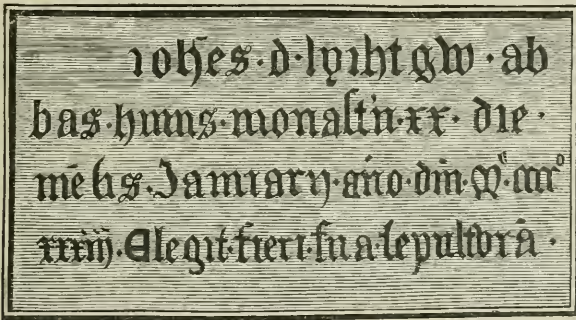 ioħes · d · lyiht gw · ab
bas · huius · monastʼii · xx · die ·
mēsis · Januarij · año · dn̄i · mº · ccccº
xxxiij · Elegit · fieri · sua · sepulturā ·